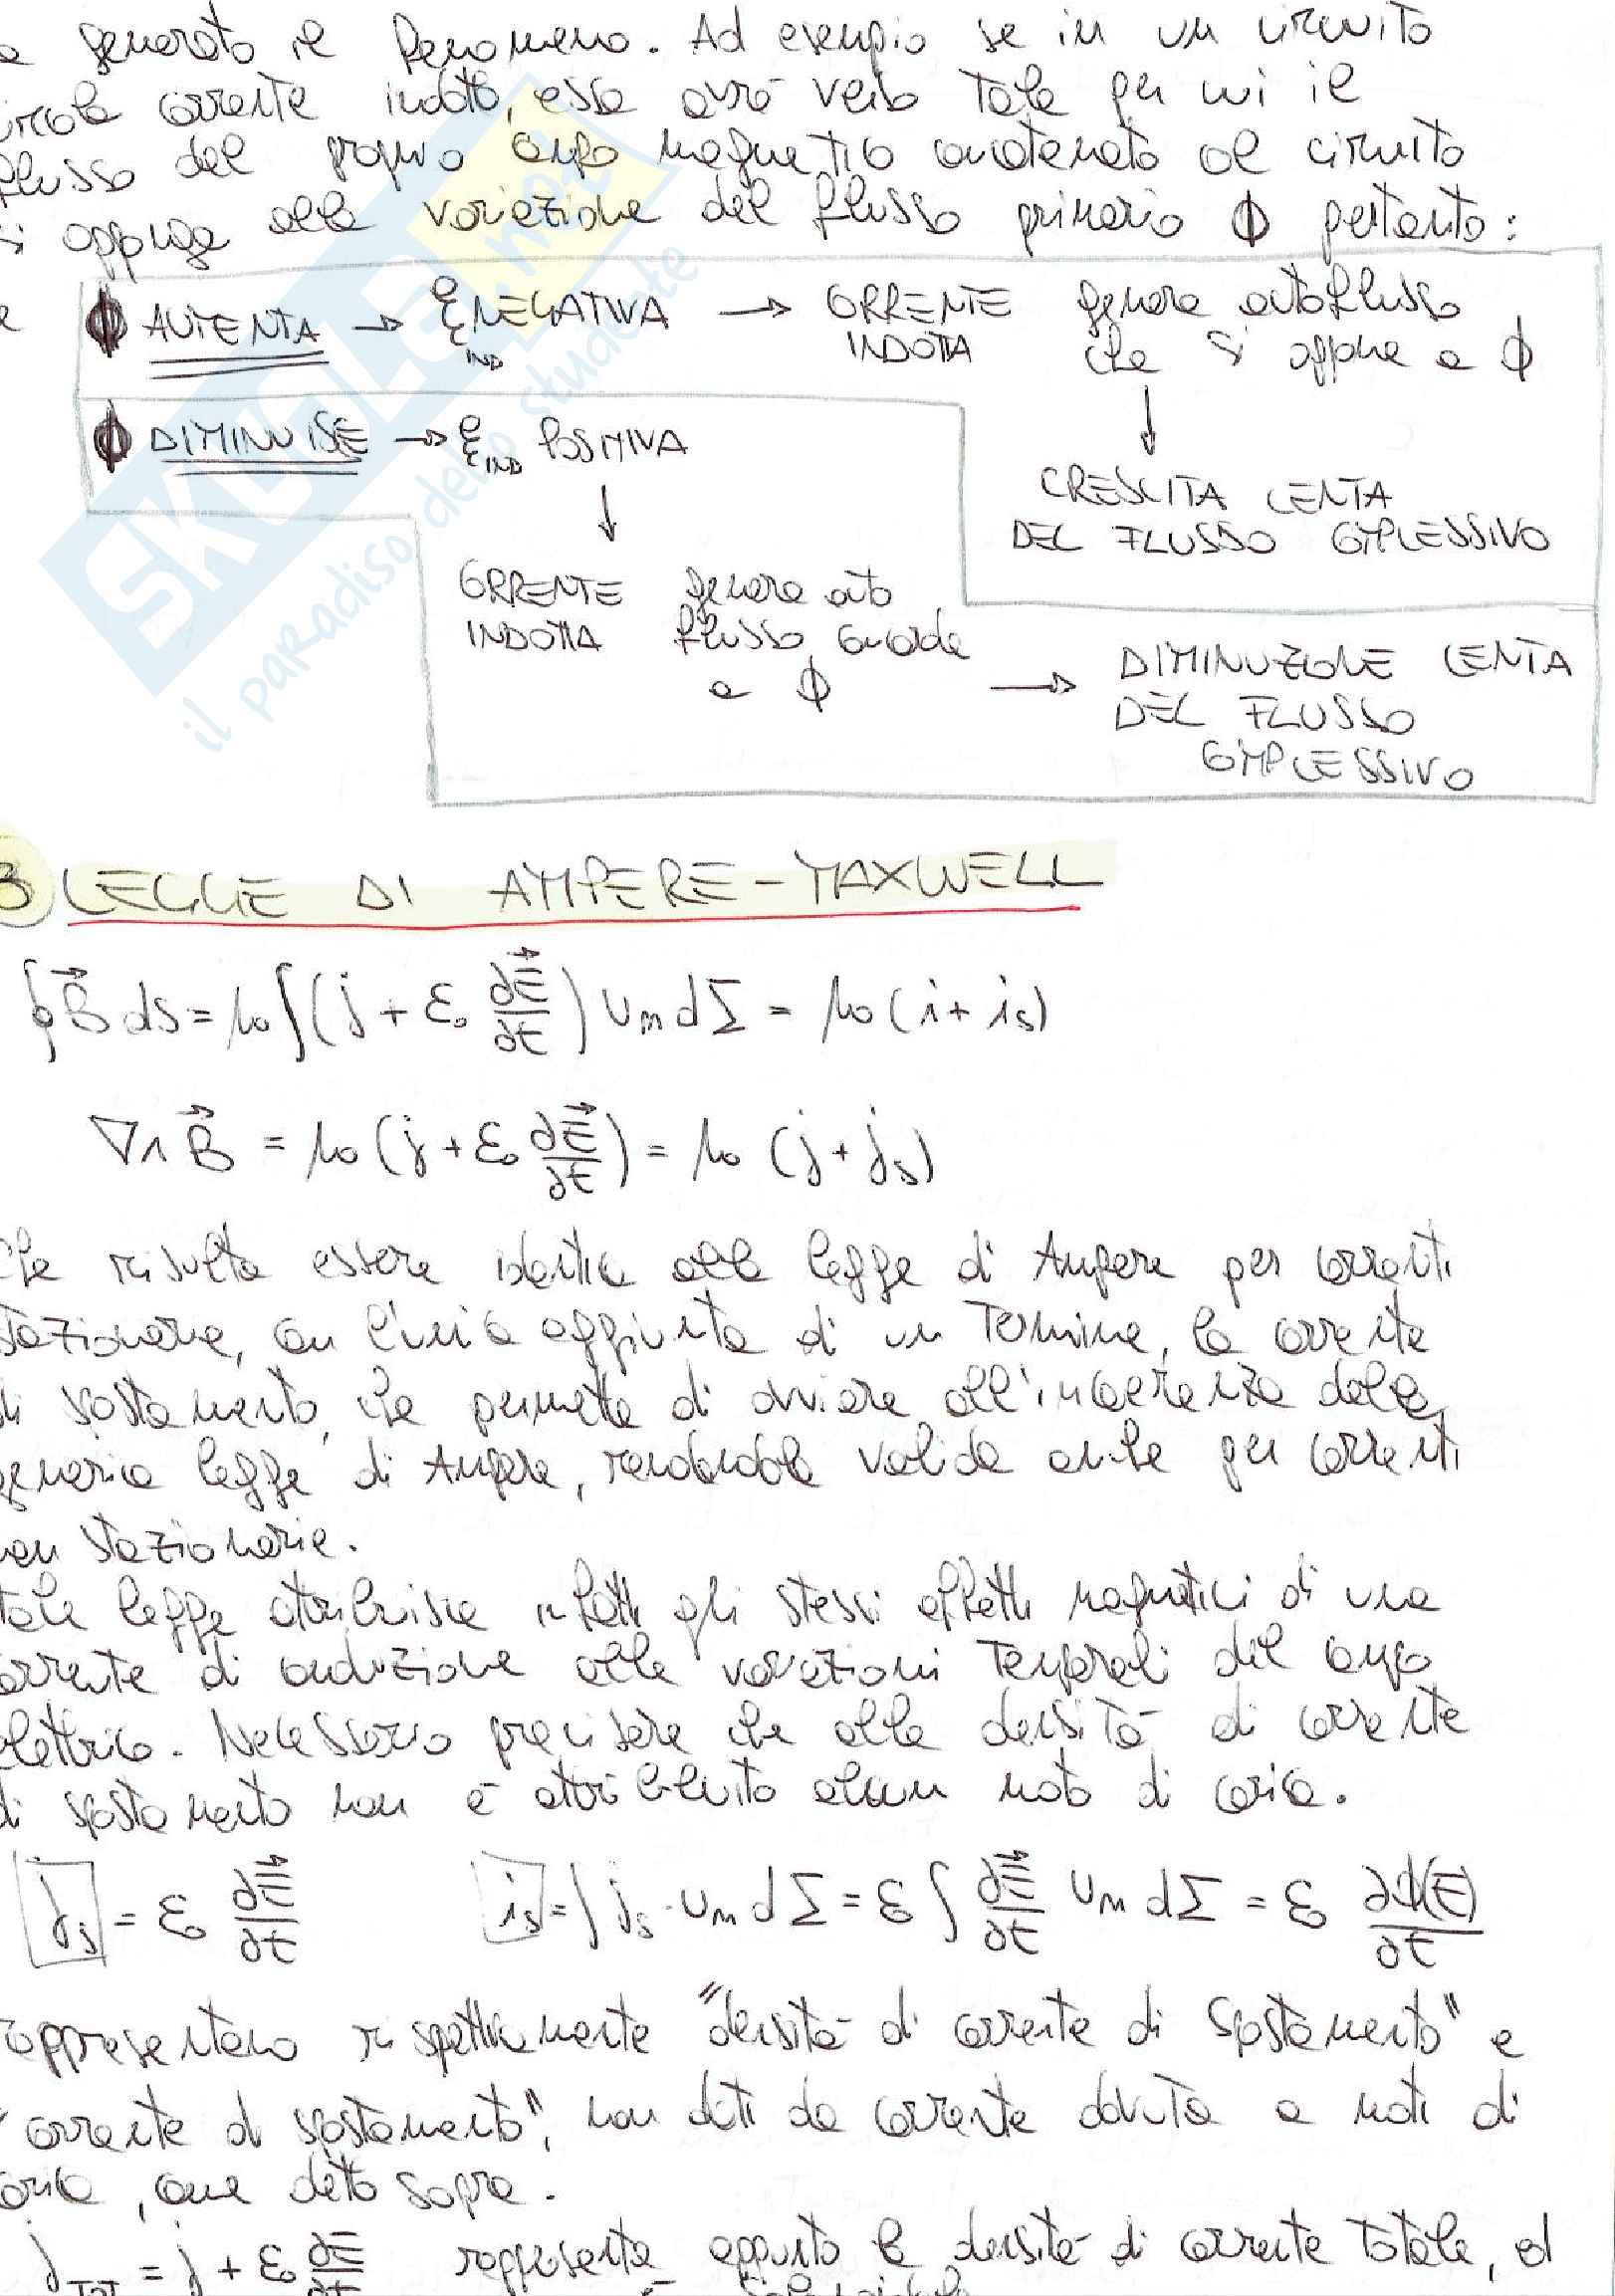 generato il fenomeno. Ad esempio se in un circuito
circola corrente indotta, essa avrà verso tale per cui il
flusso del proprio campo magnetico concatenato al circuito
si opponga alla variazione del flusso primario Φ pertanto:
Φ AUMENTA → ℰ IND NEGATIVA → CORRENTE INDOTTA genera autoflusso
che si oppone a Φ
↓
CRESCITA LENTA
DEL FLUSSO COMPLESSIVO
Φ DIMINUISCE → ℰ IND POSITIVA
↓
CORRENTE INDOTTA genera auto
flusso concorde
a Φ
→ DIMINUZIONE LENTA
DEL FLUSSO
COMPLESSIVO
SKUOLA.net
il paradiso dello studente
3 LEGGE DI AMPERE-MAXWELL
∮B⃗ ds = μ₀∫(j + ε₀ ∂E⃗/∂t) uₙ dΣ = μ₀(i + iₛ)
∇∧B⃗ = μ₀(j + ε₀ ∂E⃗/∂t) = μ₀ (j + jₛ)
che risulta essere identica alla legge di Ampere per correnti
stazionarie, con l'unica aggiunta di un termine, la corrente
di spostamento, che permette di ovviare all'incoerenza della
generica legge di Ampere, rendendola valida anche per correnti
non stazionarie.
tale legge attribuisce infatti gli stessi effetti magnetici di una
corrente di conduzione alle variazioni temporali del campo
elettrico. Necessario precisare che alla densità di corrente
di spostamento non è attribuito alcun moto di carica.
jₛ = ε₀ ∂E⃗/∂t iₛ = ∫ jₛ · uₙ dΣ = ε₀ ∫ ∂E⃗/∂t uₙ dΣ = ε₀ ∂Φ(E)/∂t
rappresentano rispettivamente "densità di corrente di spostamento" e
"corrente di spostamento", non dati da corrente dovuta a moti di
carica, come detto sopra.
j TOT = j + ε₀ ∂E/∂t rappresenta appunto la densità di corrente totale, ed